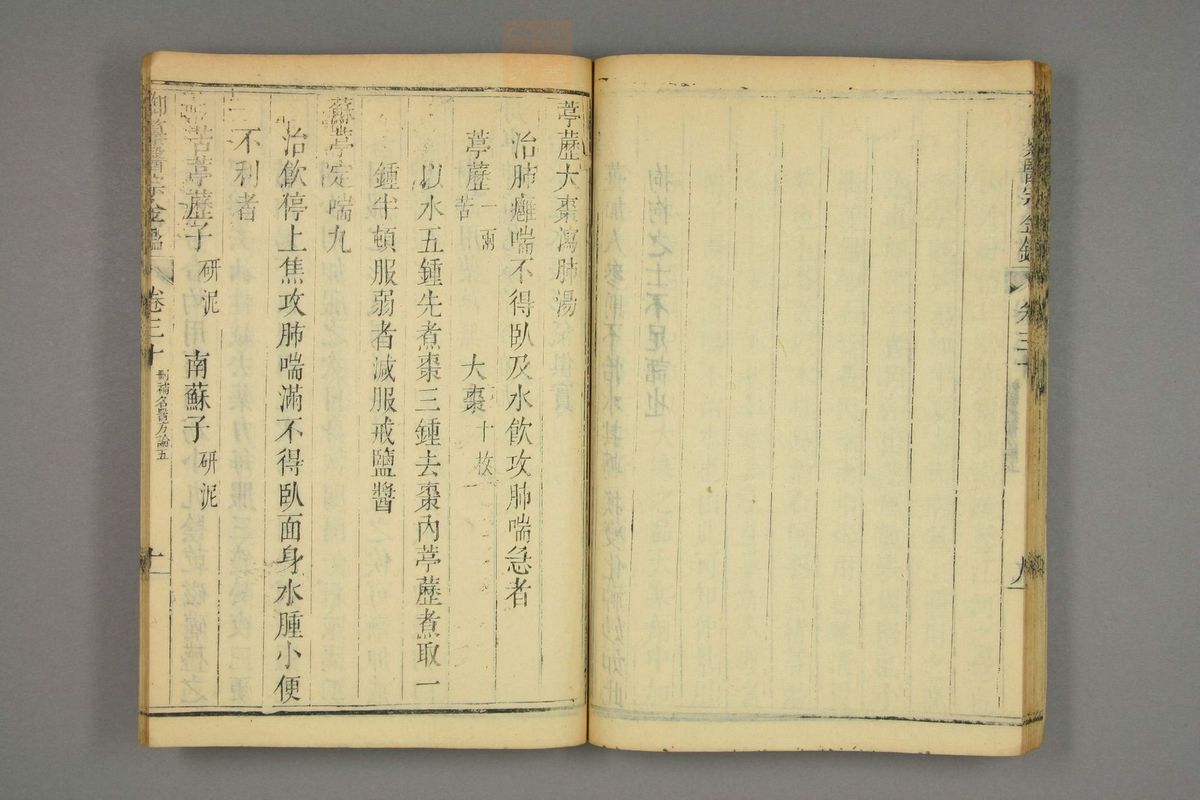 醫宗金鑑 卷三十 九
葶藶大棗瀉肺湯
治肺癰喘不得臥及水飲攻肺喘急者
葶藶一兩 苦 大棗十枚
以水五鍾先煮棗三鍾去棗內葶藶煮取一
鍾半頓服弱者減服戒鹽醬
蘇葶定喘丸
治飲停上焦攻肺喘滿不得臥面身水腫小便
不利者
苦葶藶子研泥 南蘇子研泥
御纂醫宗金鑑 卷三十 刪補名醫方論五 十